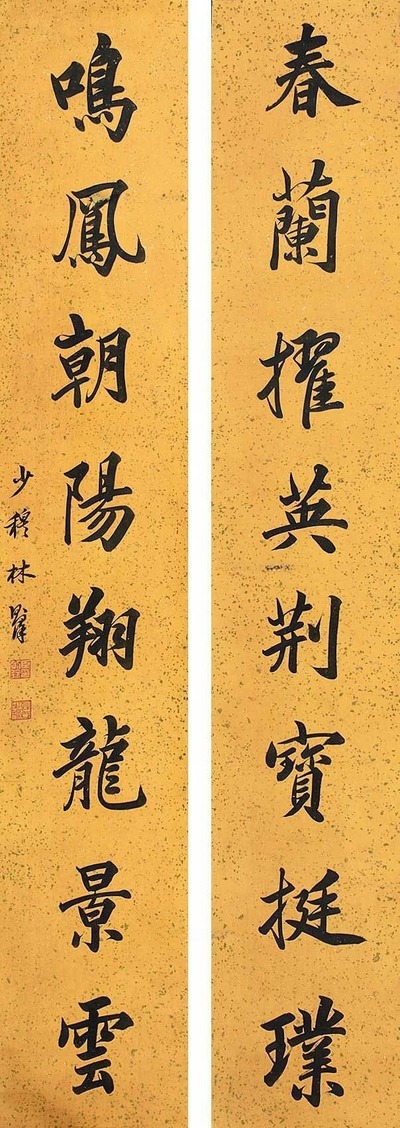 春蘭擢英荊寶挺璞
鳴鳳朝陽翔龍景雲
少穆林